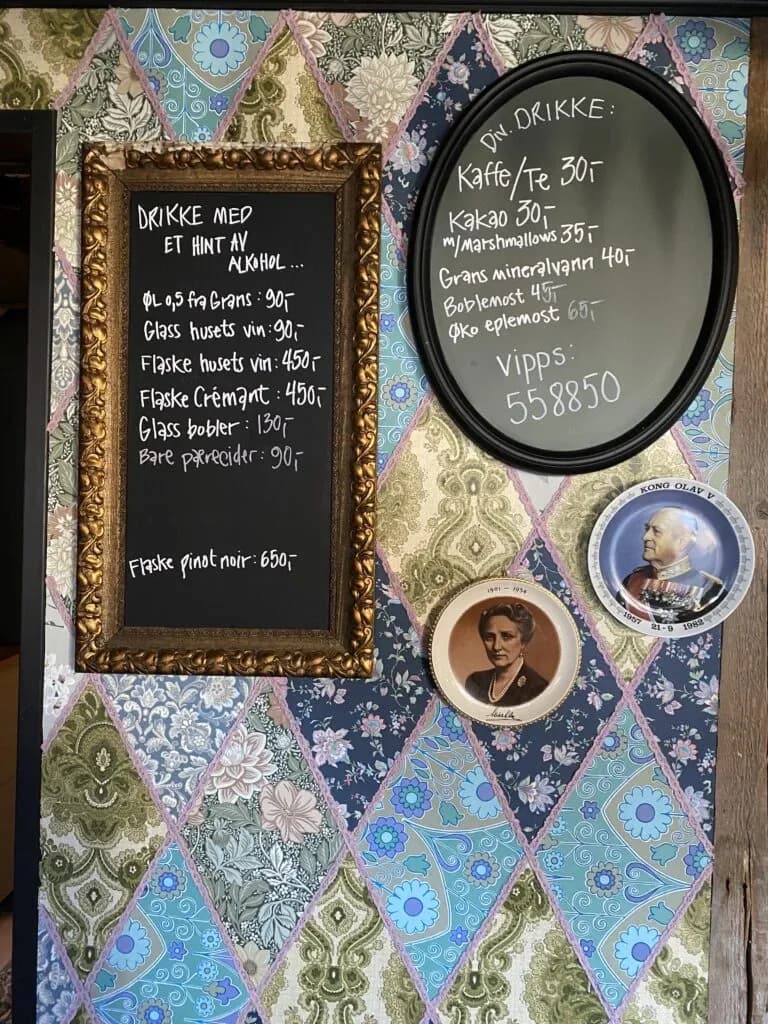 DRIKKE MED
ET HINT AV
ALKOHOL ...
ØL 0,5 fra Grans : 90,-
Glass husets vin : 90,-
Flaske husets vin : 450,-
Flaske Crémant : 450,-
Glass bobler : 130,-
Bare pærecider : 90,-
Flaske pinot noir : 650,-
Div. DRIKKE :
Kaffe/Te 30,-
Kakao 30,-
m/Marshmallows 35,-
Grans mineralvann 40,-
Boblemost 45,-
Øko eplemost 65,-
Vipps :
558850
KONG OLAV V
1957 21-9 1982
1901 - 1954